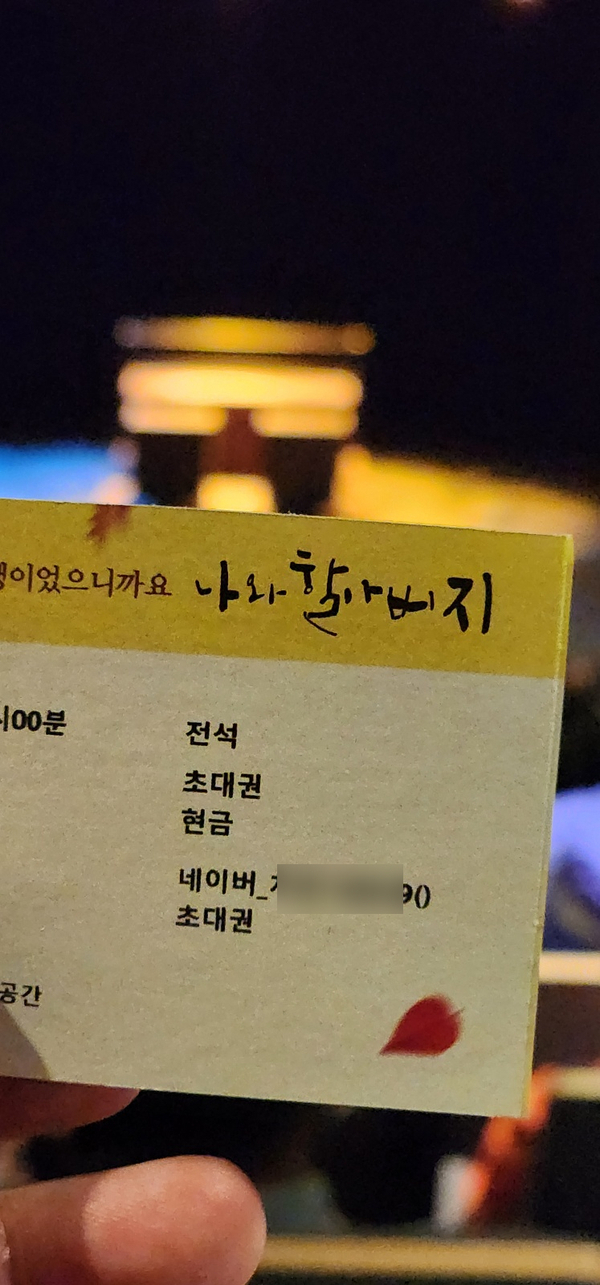 이었으니까요 나와 할아버지
시00분
전석
초대권
현금
네이버_ 9()
초대권
공간